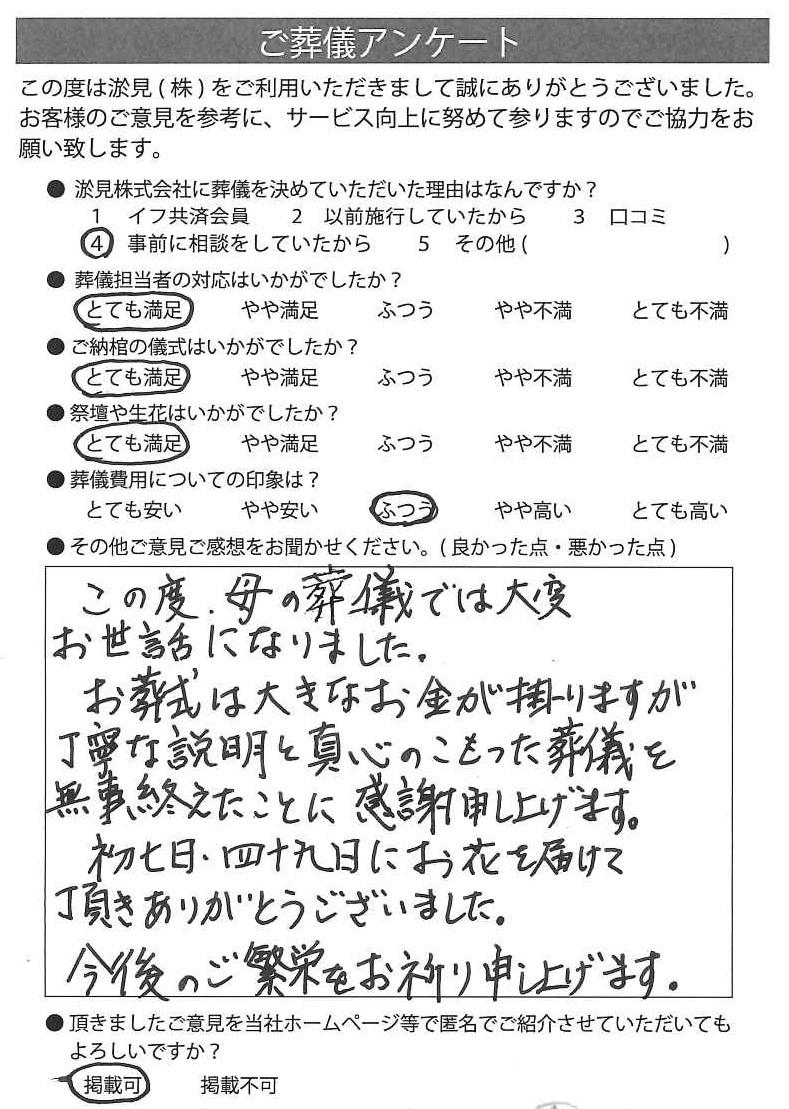 ご葬儀アンケート
この度は淤見(株)をご利用いただきまして誠にありがとうございました。
お客様のご意見を参考に、サービス向上に努めて参りますのでご協力をお
願い致します。
● 淤見株式会社に葬儀を決めていただいた理由はなんですか？
1 イフ共済会員 2 以前施行していたから 3 口コミ
4 事前に相談をしていたから 5 その他( )
● 葬儀担当者の対応はいかがでしたか？
とても満足 やや満足 ふつう やや不満 とても不満
● ご納棺の儀式はいかがでしたか？
とても満足 やや満足 ふつう やや不満 とても不満
● 祭壇や生花はいかがでしたか？
とても満足 やや満足 ふつう やや不満 とても不満
● 葬儀費用についての印象は？
とても安い やや安い ふつう やや高い とても高い
● その他ご意見ご感想をお聞かせください。(良かった点・悪かった点)
この度、母の葬儀では大変
お世話になりました。
お葬式は大きなお金が掛りますが
丁寧な説明と真心のこもった葬儀を
無事終えたことに感謝申し上げます。
初七日・四十九日にお花を届けて
頂きありがとうございました。
今後のご繁栄をお祈り申し上げます。
● 頂きましたご意見を当社ホームページ等で匿名でご紹介させていただいても
よろしいですか？
掲載可 掲載不可